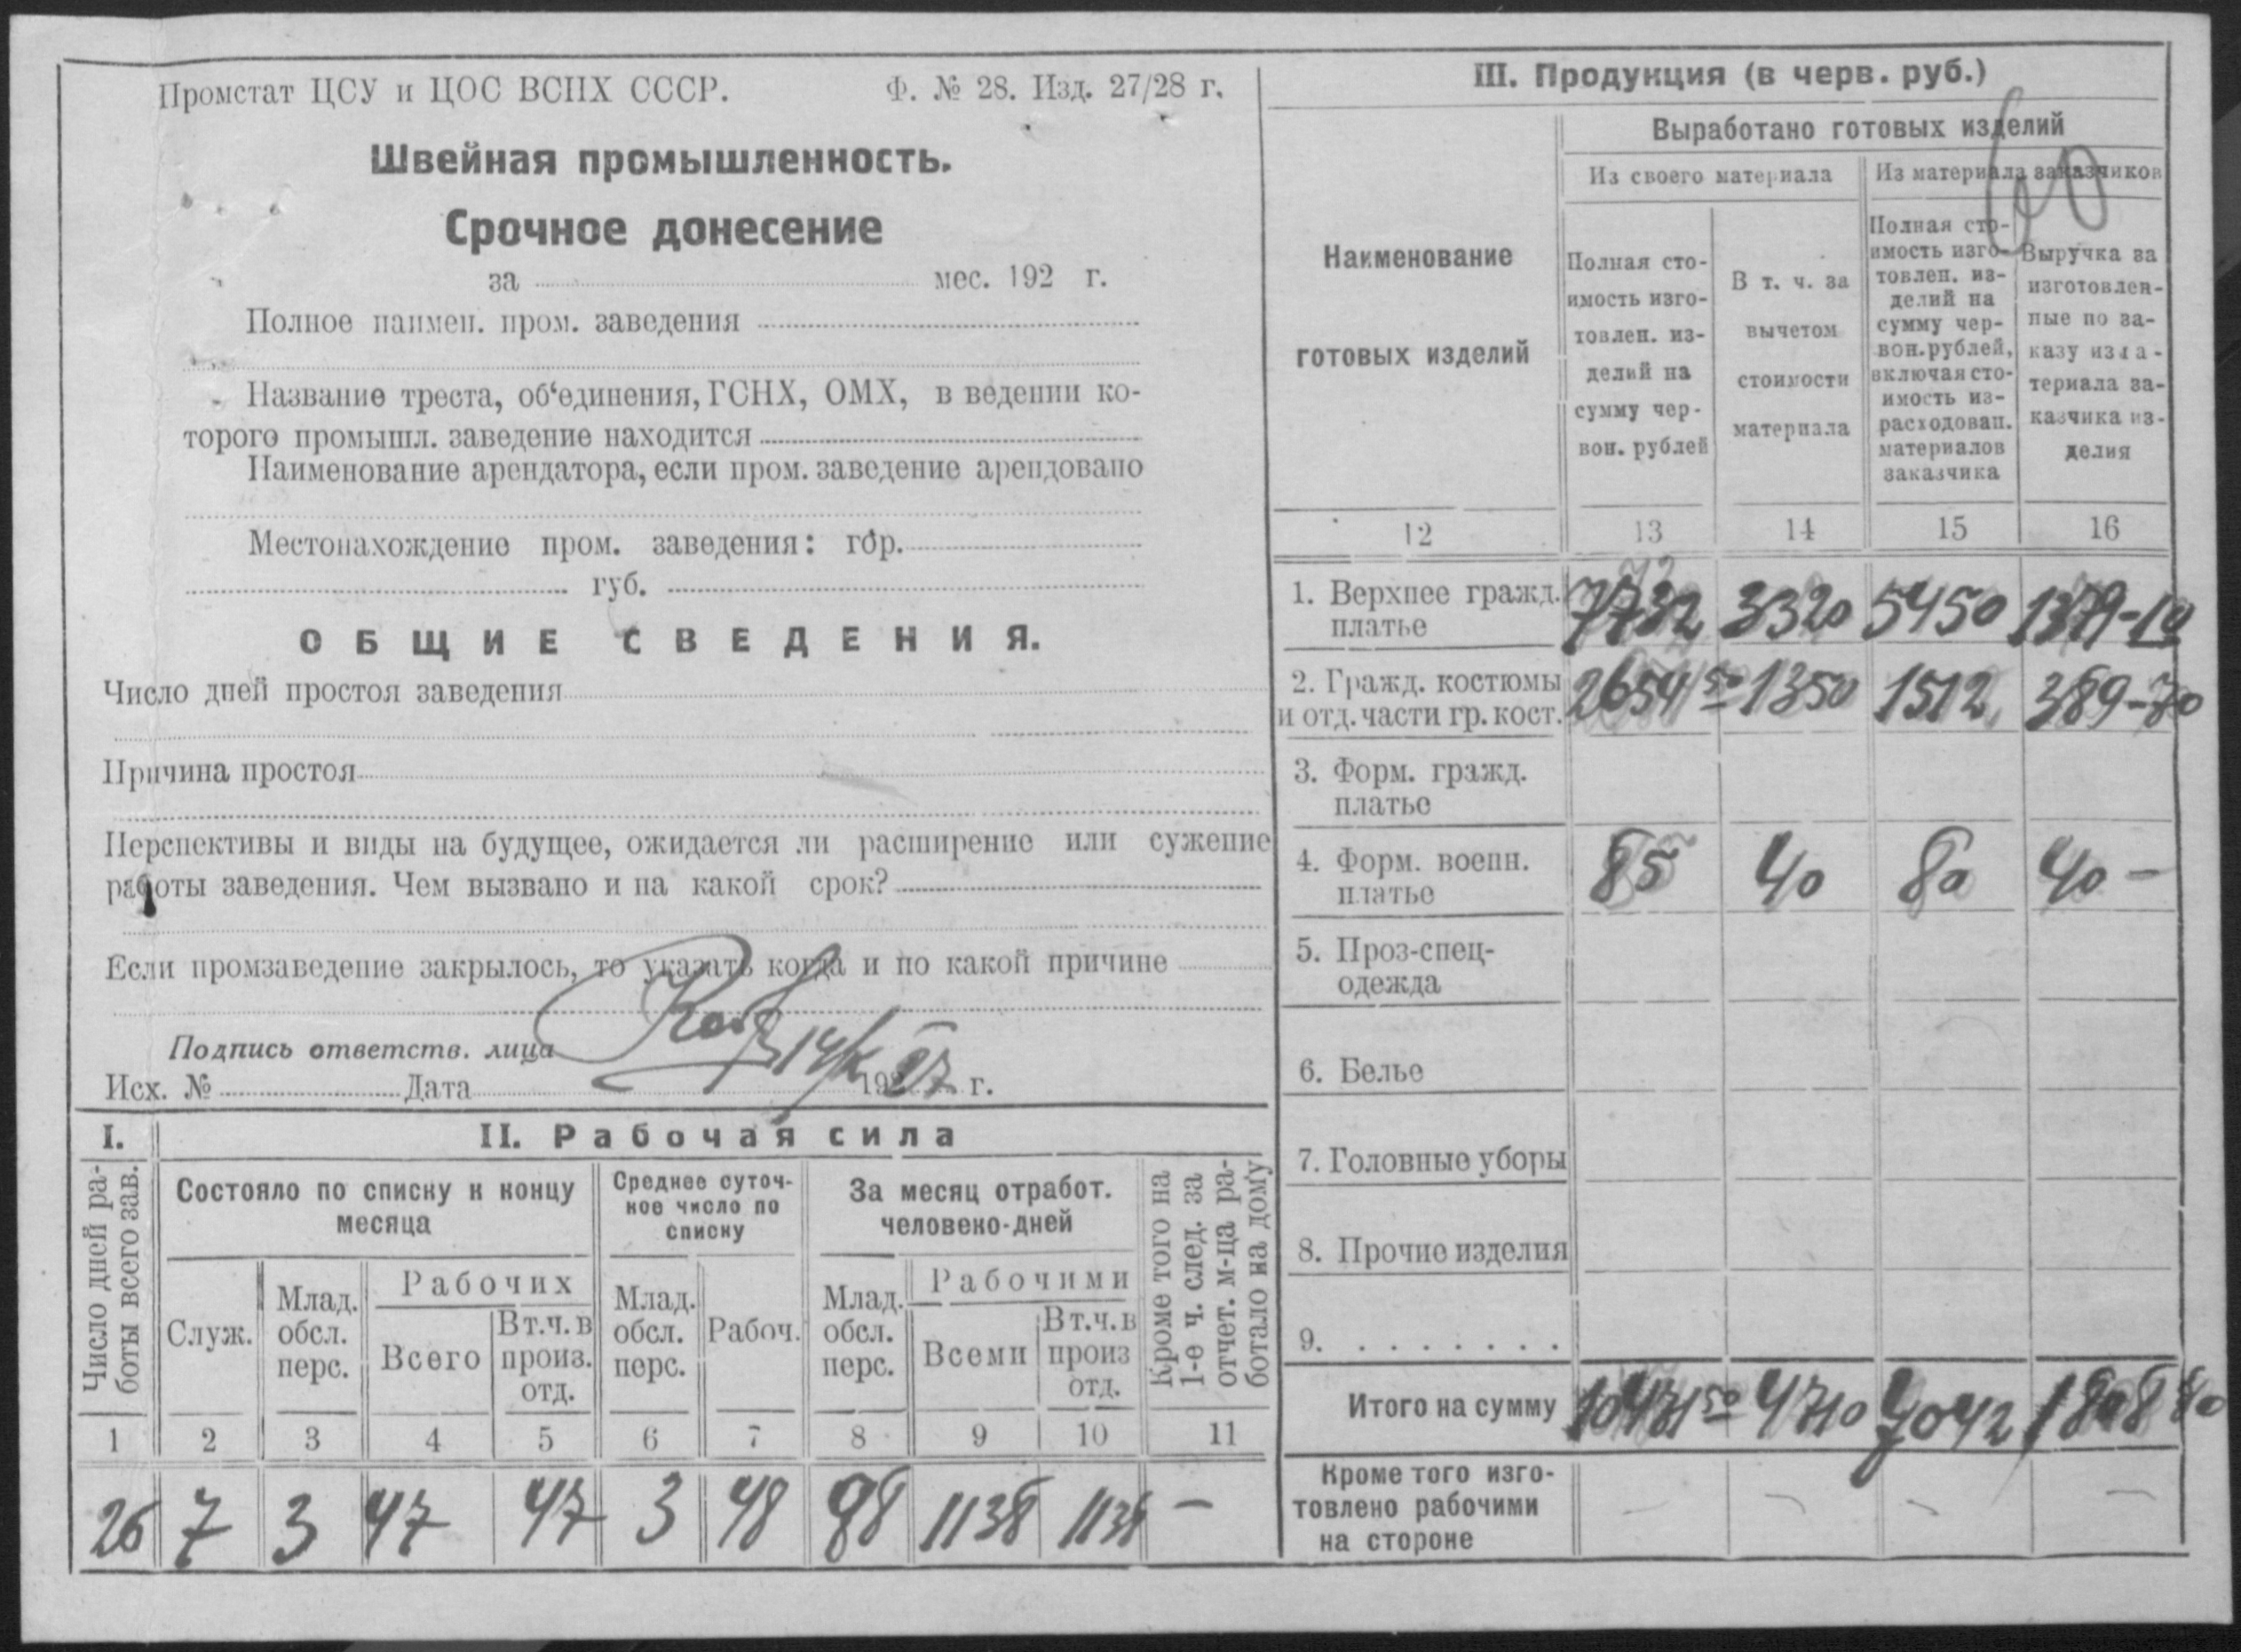 Промстат ЦСУ и ЦОС ВСНХ СССР. Ф. № 28. Изд. 27/28 г.
Швейная промышленность.
Срочное донесение
за мес. 192 г.
Полное наимен. пром. заведения
Название треста, об‘единения, ГСНХ, ОМХ, в ведении ко-
торого промышл. заведение находится
Наименование арендатора, если пром. заведение арендовано
Местонахождение пром. заведения: гор.
губ.
ОБЩИЕ СВЕДЕНИЯ.
Число дней простоя заведения
Причина простоя
Перспективы и виды на будущее, ожидается ли расширение или сужение
работы заведения. Чем вызвано и на какой срок?
Если промзаведение закрылось, то указать когда и по какой причине
Подпись ответств. лица
Исх. № Дата 1927 г.
I.
Число дней ра-
боты всего зав.
II. Рабочая сила
Состояло по списку к концу
месяца
Среднее суточ-
ное число по
списку
За месяц отработ.
человеко-дней
Кроме того на
1-е ч. след. за
отчет. м-ца ра-
ботало на дому
Служ.
Млад.
обсл.
перс.
Рабочих
Всего
Вт.ч.в
произ.
отд.
Млад.
обсл.
перс.
Рабоч.
Млад.
обсл.
перс.
Рабочими
Всеми
Вт.ч.в
произ
отд.
1 2 3 4 5 6 7 8 9 10 11
26 7 3 47 47 3 48 98 1138 1138 —
III. Продукция (в черв. руб.)
Наименование
готовых изделий
Выработано готовых изделий
Из своего материала
Из материала заказчиков
Полная сто-
имость изго-
товлен. из-
делий на
сумму чер-
вон. рублей
В т. ч. за
вычетом
стоимости
материала
Полная сто-
имость изго-
товлен. из-
делий на
сумму чер-
вон.рублей,
включая сто-
имость из-
расходован.
материалов
заказчика
Выручка за
изготовлен-
ные по за-
казу из ма-
териала за-
казчика из-
делия
12 13 14 15 16
1. Верхнее гражд.
платье
7732 3320 5450 1379-10
2. Гражд. костюмы
и отд. части гр. кост.
2654 50 1350 1512 389-70
3. Форм. гражд.
платье
4. Форм. воен н.
платье
85 40 80 40 —
5. Проз-спец-
одежда
6. Белье
7. Головные уборы
8. Прочие изделия
9. . . . . . . .
Итого на сумму 10471 50 4710 7042 1808 80
Кроме того изго-
товлено рабочими
на стороне
— — — —